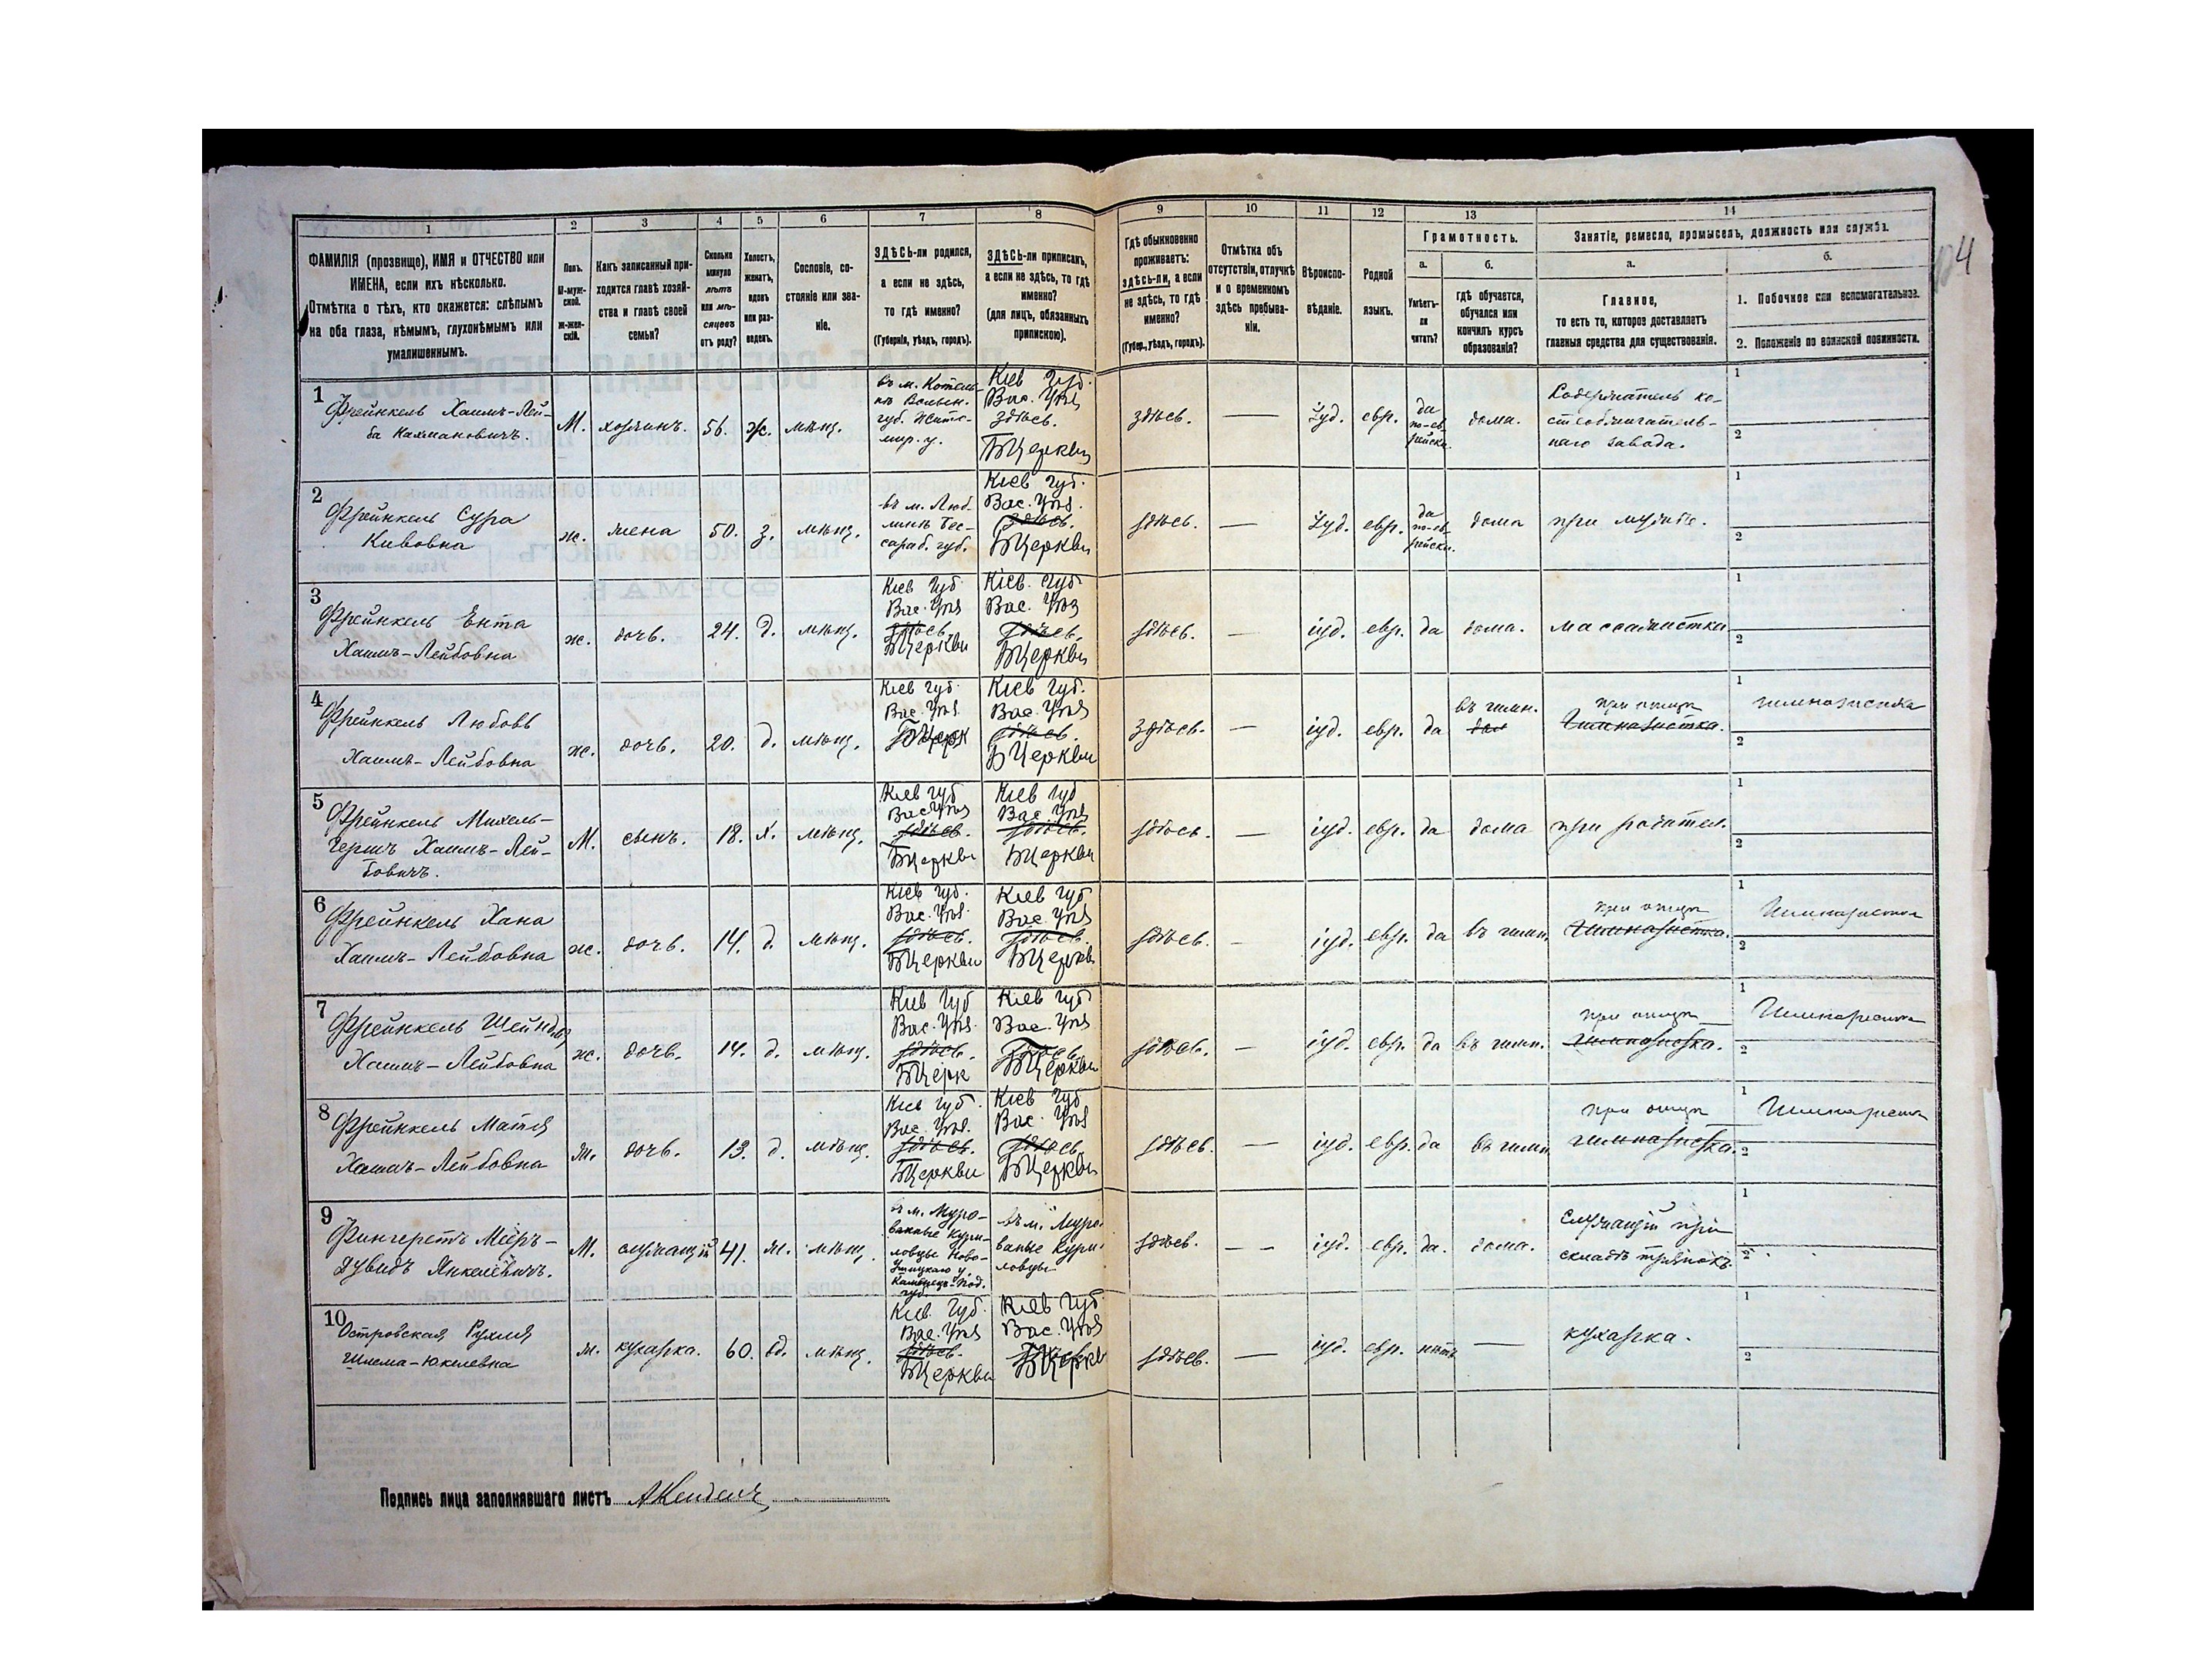 1 2 3 4 5 6 7 8 9 10 11 12 13 14
ФАМИЛІЯ (прозвище), ИМЯ и ОТЧЕСТВО или
ИМЕНА, если ихъ нѣсколько.
Отмѣтка о тѣхъ, кто окажется: слѣпымъ
на оба глаза, нѣмымъ, глухонѣмымъ или
умалишеннымъ.
Полъ.
М-муж-
ской.
ж-жен-
скій.
Какъ записанный при-
ходится главѣ хозяй-
ства и главѣ своей
семьи?
Сколько
минуло
лѣтъ
или мѣ-
сяцевъ
отъ роду?
Холостъ,
женатъ,
вдовъ
или раз-
веденъ.
Сословіе, со-
стояніе или зва-
ніе.
ЗДѢСЬ-ли родился,
а если не здѣсь,
то гдѣ именно?
(Губернія, уѣздъ, городъ).
ЗДѢСЬ-ли приписанъ,
а если не здѣсь, то гдѣ
именно?
(для лицъ, обязанныхъ
припискою).
Гдѣ обыкновенно
проживаетъ:
здѣсь-ли, а если
не здѣсь, то гдѣ
именно?
(Губер., уѣздъ, городъ).
Отмѣтка объ
отсутствіи, отлучкѣ
и о временномъ
здѣсь пребыва-
ніи.
Вѣроиспо-
вѣданіе.
Родной
языкъ.
Грамотность.
а.
Умѣетъ-
ли
читать?
б.
гдѣ обучается,
обучался или
кончилъ курсъ
образованія?
Занятіе, ремесло, промыселъ, должность или служба.
а.
Главное,
то есть то, которое доставляетъ
главныя средства для существованія.
б.
1. Побочное или вспомогательное.
2. Положеніе по воинской повинности.
4
1
Фрейнкель Хаимъ-Лей-
ба Нахмановичъ.
М.
хозяинъ.
56.
ж.
мѣщ.
въ м. Котель-
нѣ Волын.
губ. Жито-
мир. у.
Кіев Губ.
Вас. Уѣз
здѣсь.
БЦеркви
здѣсь.
Іуд.
евр.
да
по-ев-
рейски.
дома.
Содержатель ко-
стеобжигатель-
наго завода.
1
2
2
Фрейнкель Сура
Кивовна
ж.
жена
50.
з.
мѣщ.
въ м. Люб-
линѣ Бес-
сараб. губ.
Кіев Губ.
Вас. Уѣз.
здѣсь.
БЦеркви
здѣсь.
Іуд.
евр.
да
по-ев-
рейски.
дома
при мужѣ.
1
2
3
Фрейнкель Ента
Хаимъ-Лейбовна
ж.
дочь.
24.
д.
мѣщ.
Кіев Губ
Вас. Уѣз
здѣсь.
БЦеркви
Кіев. Губ
Вас. Уѣз
здѣсь.
БЦеркви
здѣсь.
іуд.
евр.
да
дома.
массажистка
1
2
4
Фрейнкель Любовь
Хаимъ-Лейбовна
ж.
дочь.
20.
д.
мѣщ.
Кіев Губ.
Вас. Уѣз.
БЦерк
Кіев Губ.
Вас. Уѣз
здѣсь.
БЦеркви
здѣсь.
іуд.
евр.
да
въ гимн.
при отцѣ
Гимназистка.
1
гимназистка
2
5
Фрейнкель Михель-
Гершъ Хаимъ-Лей-
бовичъ.
М.
сынъ.
18.
х.
мѣщ.
Кіев Губ
Вас Уѣз
здѣсь.
БЦеркви
Кіев Губ
Вас Уѣз
здѣсь.
БЦеркви
здѣсь.
іуд.
евр.
да
дома
при родител.
1
2
6
Фрейнкель Хана
Хаимъ-Лейбовна
ж.
дочь.
14.
д.
мѣщ.
Кіев Губ.
Вас. Уѣз.
здѣсь.
БЦеркви
Кіев Губ
Вас. Уѣз
здѣсь.
БЦеркв
здѣсь.
іуд.
евр.
да
въ гимн.
при отцѣ
Гимназистка.
1
Гимназистка
2
7
Фрейнкель Шейндля
Хаимъ-Лейбовна
ж.
дочь.
14.
д.
мѣщ.
Кіев Губ
Вас. Уѣз.
здѣсь.
БЦерк
Кіев Губ
Вас. Уѣз
здѣсь.
БЦеркви
здѣсь.
іуд.
евр.
да
въ гимн.
при отцѣ
1
Гимназистка
2
8
Фрейнкель Матля
Хаимъ-Лейбовна
ж.
дочь.
13.
д.
мѣщ.
Кіев Губ.
Вас. Уѣз.
здѣсь.
БЦеркви
Кіев Губ
Вас. Уѣз
здѣсь.
БЦеркви
здѣсь.
іуд.
евр.
да
въ гимн.
при отцѣ
1
Гимназистка
2
9
Фингеретъ Меіръ-
Дувидъ Янкелевичъ.
М.
служащій
41.
ж.
мѣщ.
въ м. Муро-
ванные Кури-
ловцы Ново-
Ушицкаго у.
Каменецъ-Под.
губ.
въ м. Муро-
ваные Кури-
ловцы
здѣсь.
іуд.
евр.
да.
дома.
Служащій при
складѣ тряпокъ.
1
2
10
Островская Рухля
Шлема-Юкелевна
ж.
кухарка.
60.
вд.
мѣщ.
Кіев. Губ.
Вас. Уѣз
здѣсь.
БЦеркви
Кіев Губ
Вас. Уѣз
здѣсь
БЦеркв
здѣсь.
іуд.
евр.
нѣтъ
кухарка.
1
2
Подпись лица заполнявшаго листъ